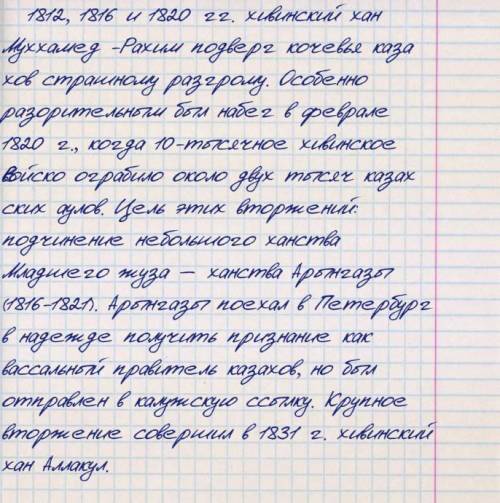 1812, 1816 и 1820 гг. хивинский хан
Муххамед -Рахим подверг кочевья каза
хов страшному разгрому. Особенно
разорительным был набег в феврале
1820 г., когда 10-тысячное хивинское
войско ограбило около двух тысяч казах
ских аулов. Цель этих вторжений:
подчинение небольшого ханства
Младшего жуза — ханства Арынгазы
(1816-1821). Арынгазы поехал в Петербург
в надежде получить признание как
вассальный правитель казахов, но был
отправлен в калужскую ссылку. Крупное
вторжение совершил в 1831 г. хивинский
хан Аллакул.